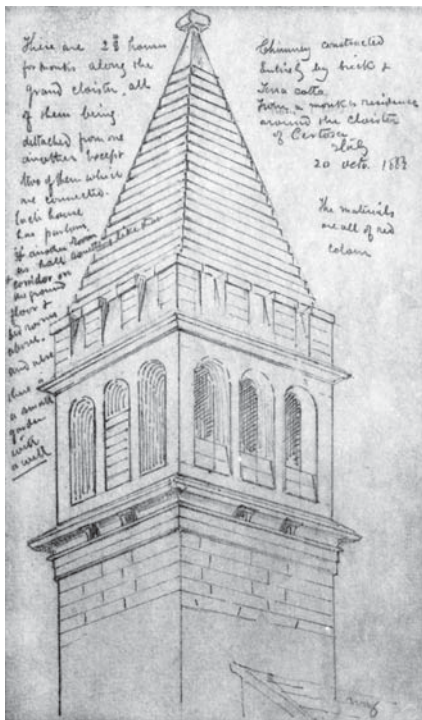 There are 23 homes
for monks along the
grand cloister, all
of them being
detached from one
another except
two of them which
are connected.
Each house
has
another room
hall like
corridor on
the ground
floor &
six rooms
above.
and also
there is
a small
garden
with
a well
Chimney constructed
Entirely by brick &
Terra cotta
From a monk's residence
around the cloister
of Certosa
Italy
20 octo.
The materials
are all of red
colour